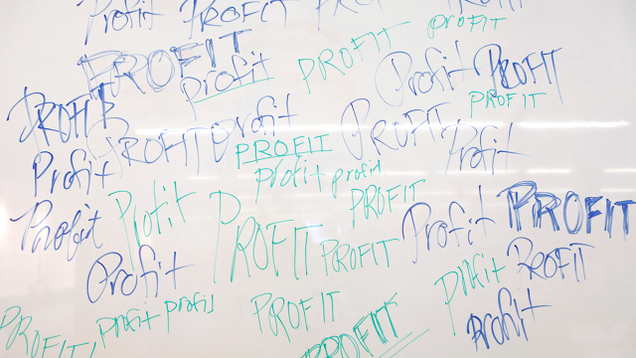 Profit PROFIT
PROFIT
Profit
PROFIT
profit
PROFIT
Profit PROFIT
PROFIT
PROFIT
profit
PROFIT
Profit
Profit
PROFIT
PROFIT
profit profit
PROFIT
Profit
Profit
Profit
PROFIT
PROFIT
Profit
PROFIT
Profit
PROFIT
Profit
PROFIT
PROFIT, profit profit
PROFIT
Profit